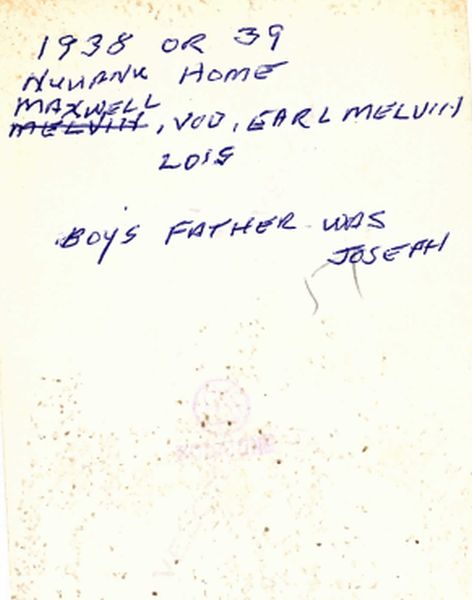 1938 OR 39
HOME
MAXWELL
MELVIN, VOD, EARL MELVIN
LOIS
BOYS FATHER WAS
JOSEPH